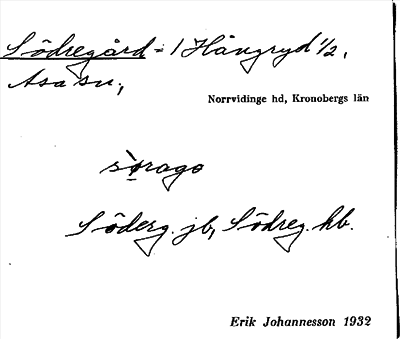 Södregård = 1 Hångryd 1/2,
Asa sn,
Norrvidinge hd, Kronobergs län
sørago
Söderg. jb, Södreg. kb.
Erik Johannesson 1932